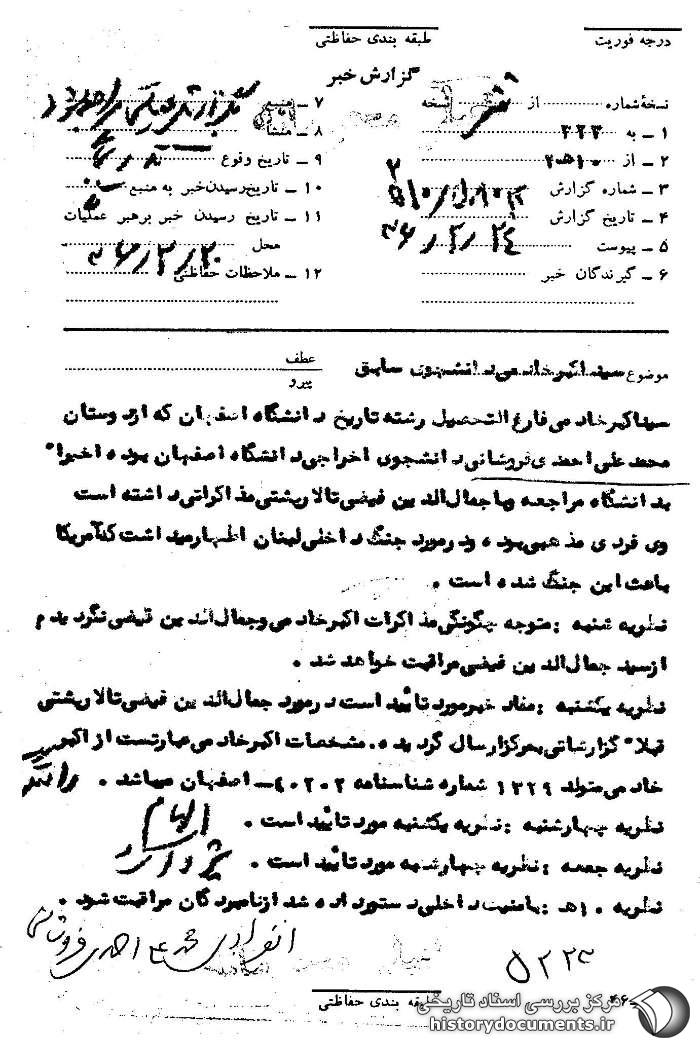 درجه فوریت
طبقه بندی حفاظتی
گزارش خبر
نسخهٔ شماره از نسخه
۱ ـ به ۳۲۳
۲ ـ از ۲۰ه۱۰
۳ ـ شماره گزارش
۴ ـ تاریخ گزارش ۳۶/۳/۲۴
۵ ـ پیوست
۶ ـ گیرندگان خبر
۷ ـ منبع
۸ ـ منشأ
۹ ـ تاریخ وقوع
۱۰ ـ تاریخ رسیدن خبر به منبع
۱۱ ـ تاریخ رسیدن خبر برهبر عملیات
محل ۳۶/۳/۲۰
۱۲ ـ ملاحظات حفاظتی
موضوع سید اکبر خادمی دانشجوی سابق
عطف
پیرو
سید اکبر خادمی فارغ التحصیل رشته تاریخ دانشگاه اصفهان که از دوستان
محمد علی احمدی فروشانی دانشجوی اخراجی دانشگاه اصفهان بوده اخیرا"
بدانشگاه مراجعه و با جمال الدین فیضی تالارپشتی مذاکراتی داشته است
وی فردی مذهبی بوده و در مورد جنگ داخلی لبنان اظهار میداشت که آمریکا
باعث این جنگ شده است .
نظریه شنبه : متوجه چگونگی مذاکرات اکبر خادمی و جمال الدین فیضی نگردیدم
از سید جمال الدین فیضی مراقبت خواهد شد .
نظریه یکشنبه : مفاد خبر مورد تائید است در مورد جمال الدین فیضی تالارپشتی
قبلا" گزارشاتی بمرکز ارسال گردیده . مشخصات اکبر خادمی عبارتست از اکبر
خادمی متولد ۱۳۲۹ شماره شناسنامه ۴۰۲۰۲ ـ اصفهان میباشد .
نظریه چهارشنبه : نظریه یکشنبه مورد تائید است . الهام
نظریه جمعه : نظریه چهارشنبه مورد تائید است .
نظریه ۱۰ه : بامنیت داخلی دستور داده شد از نامبردگان مراقبت شود .
انفرادی محمد ع احمدی فروشانی
۵۲۲۳
طبقه بندی حفاظتی
مرکز بررسی اسناد تاریخی
historydocuments.ir